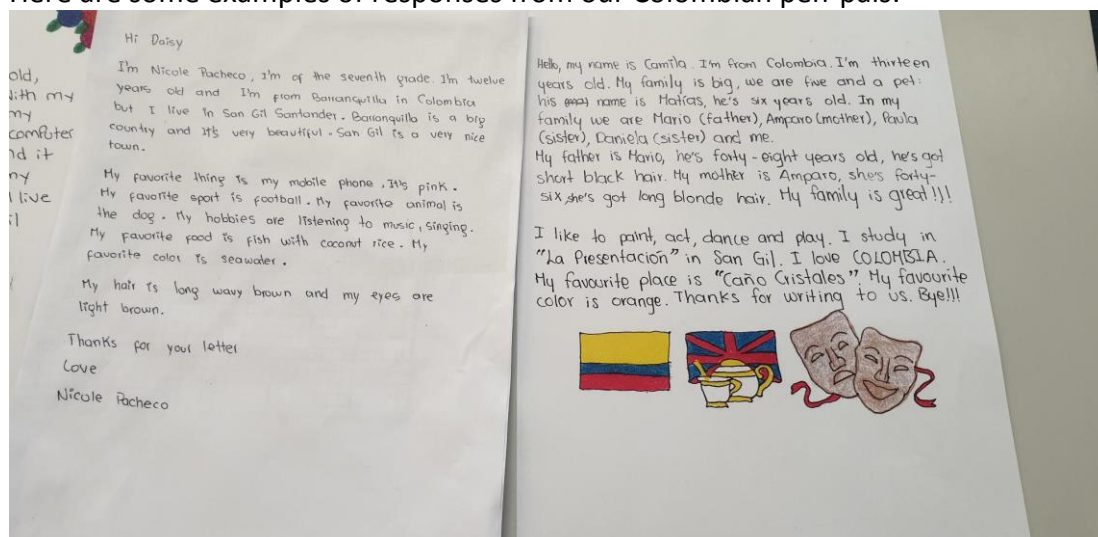 Here are some examples of responses from our Colombian pen-pals.
old,
with my
my
computer
nd it
ny
I live
il
Hi Daisy
I'm Nicole Pacheco, I'm of the seventh grade. I'm twelve
years old and I'm from Barranquilla in Colombia
but I live in San Gil Santander. Barranquilla is a big
country and it's very beautiful. San Gil is a very nice
town.
My favorite thing is my mobile phone, It's pink.
My favorite sport is football. My favorite animal is
the dog. My hobbies are listening to music, singing.
My favorite food is fish with coconut rice. My
favorite color is seawater.
My hair is long wavy brown and my eyes are
light brown.
Thanks for your letter
Love
Nicole Pacheco
Hello, my name is Camila. I'm from Colombia. I'm thirteen
years old. My family is big, we are five and a pet:
his name is Matías, he's six years old. In my
family we are Mario (father), Amparo (mother), Paula
(sister), Daniela (sister) and me.
My father is Mario, he's forty-eight years old, he's got
short black hair. My mother is Amparo, she's forty-
six, she's got long blonde hair. My family is great!!!
I like to paint, act, dance and play. I study in
"La Presentación" in San Gil. I love COLOMBIA.
My favourite place is "Caño Cristales". My favourite
color is orange. Thanks for writing to us. Bye!!!